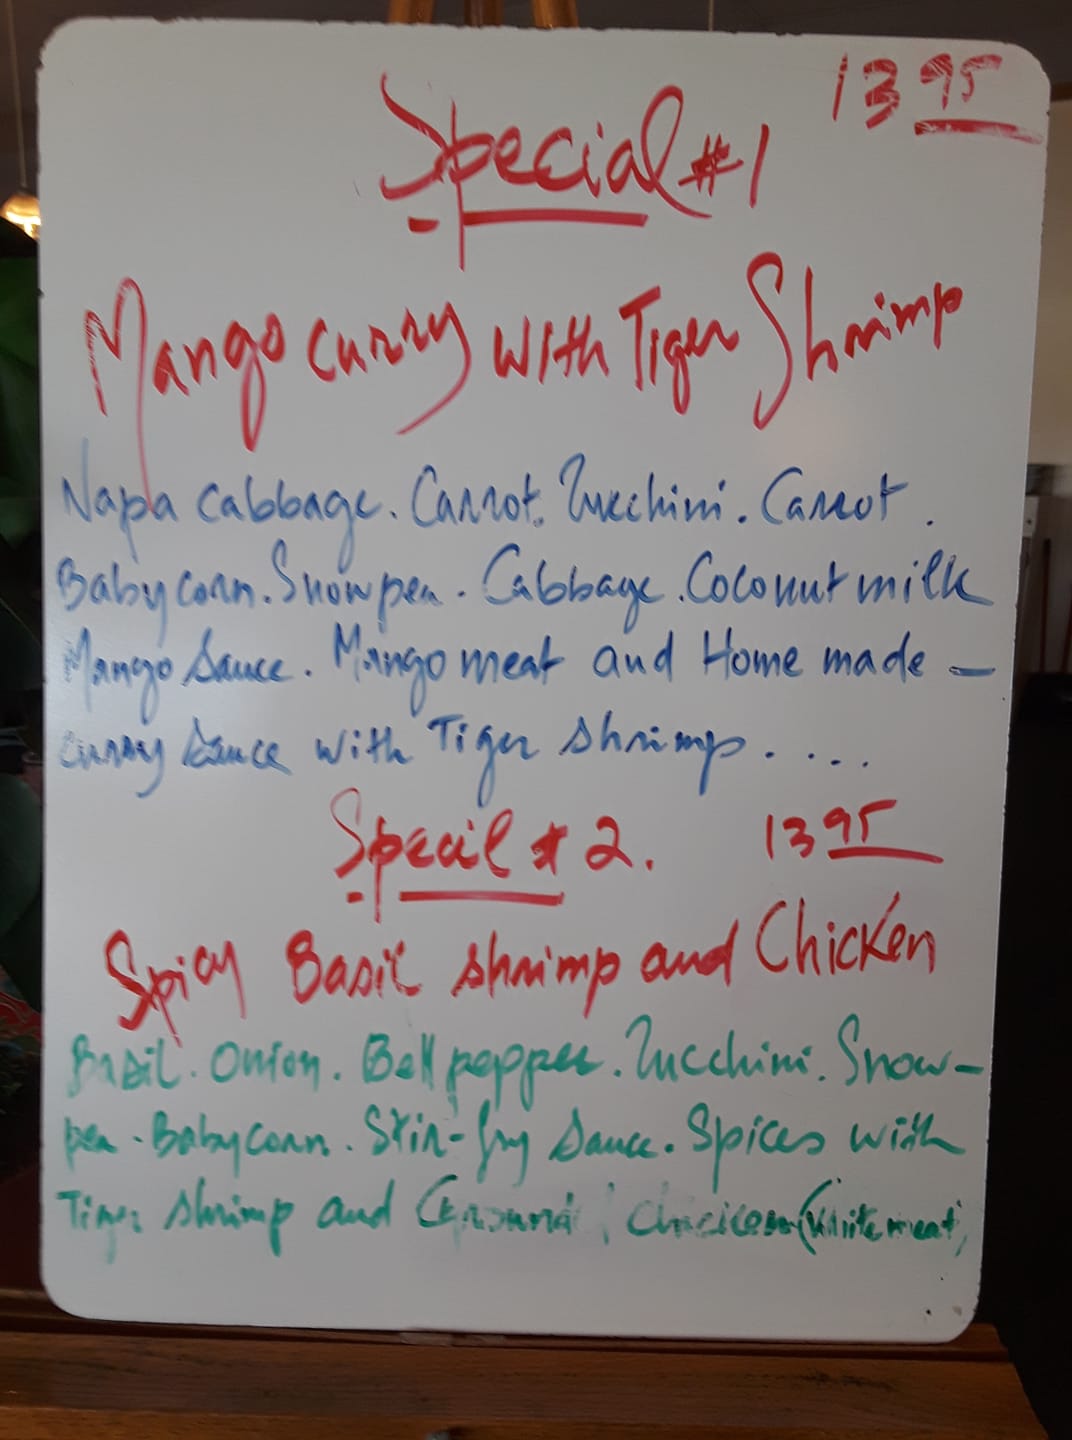 13 95
Special #1
Mango curry with Tiger Shrimp
Napa cabbage. Carrot. Zucchini. Carrot.
Baby corn. Snow pea. Cabbage. Coconut milk
Mango sauce. Mango meat and Home made -
curry sauce with Tiger shrimp.....
Specil # 2. 13 95
Spicy Basil shrimp and Chicken
Basil. Onion. Bell pepper. Zucchini. Snow-
pea. Baby corn. Stir-fry sauce. Spices with
Tiger shrimp and Ground chicken (White meat)